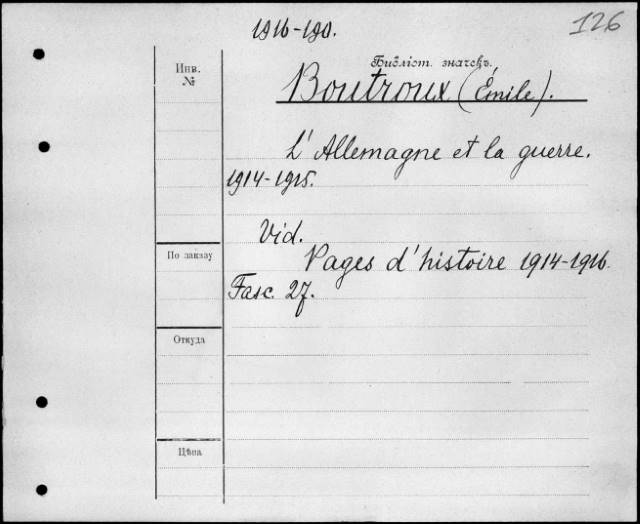 1916-190.
126
Библіот. значекъ.
Инв.
№
Boutroux (Émile).
L'Allemagne et la guerre.
1914-1915.
Vid.
По заказу
Pages d'histoire 1914-1916.
Fasc. 27.
Откуда
Цѣна